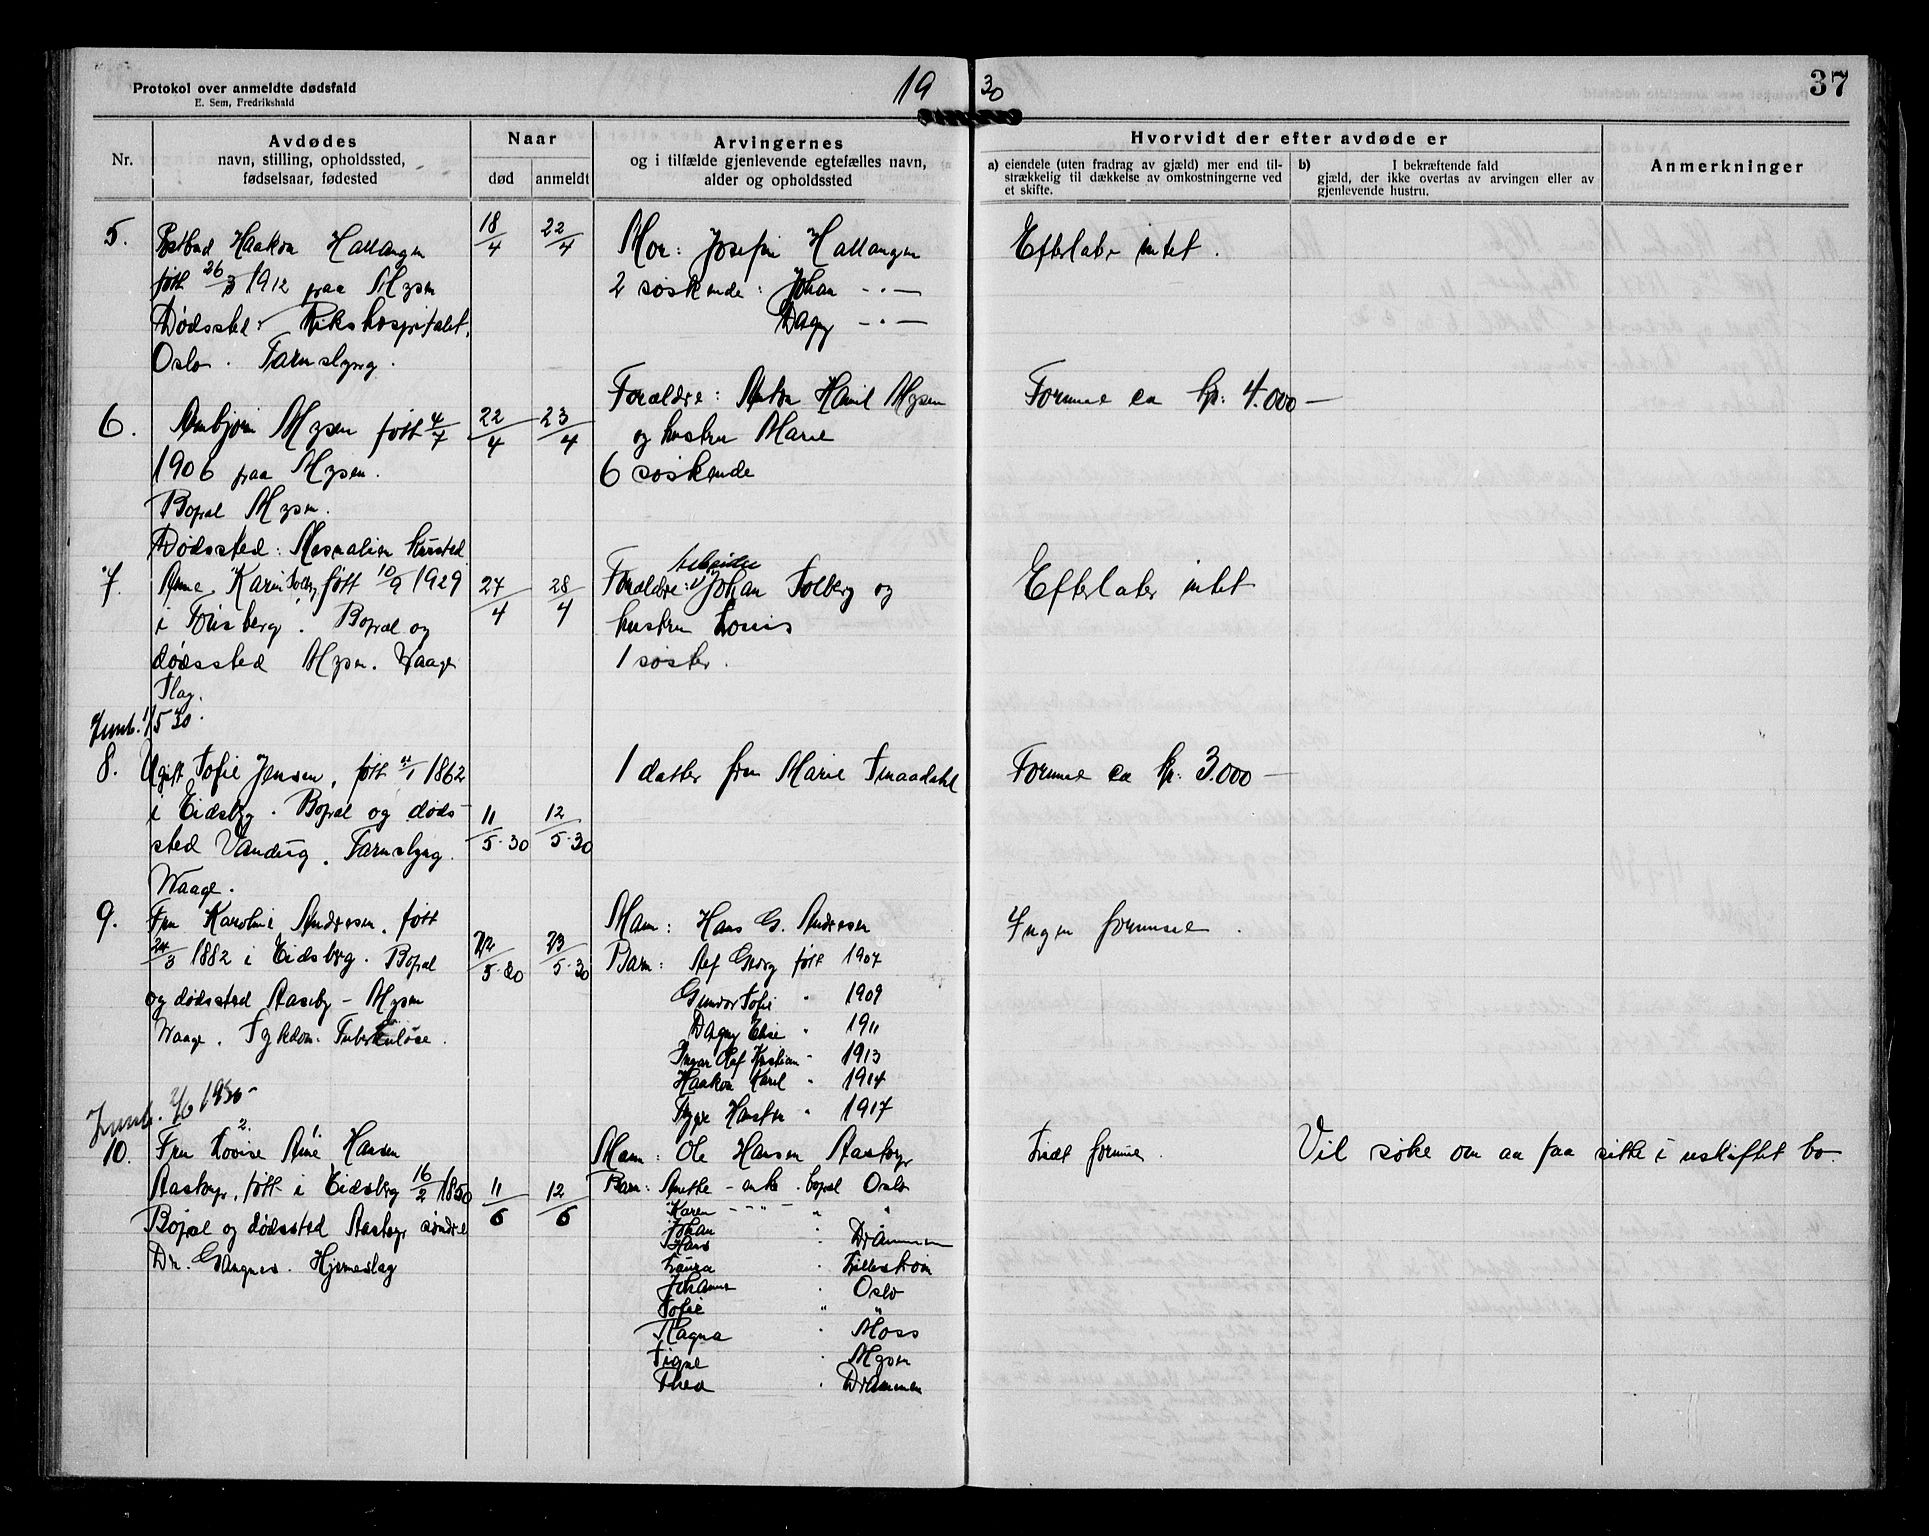 Protokol over anmeldte dødsfald
E. Sem, Fredrikshald
19 30
37
Nr.
Avdødes
navn, stilling, opholdssted,
fødselsaar, fødested
Naar
død
anmeldt
Arvingernes
og i tilfælde gjenlevende egtefælles navn,
alder og opholdssted
Hvorvidt der efter avdøde er
a) eiendele (uten fradrag av gjæld) mer end til-
strækkelig til dækkelse av omkostningerne ved
et skifte.
b) I bekræftende fald
gjæld, der ikke overtas av arvingen eller av
gjenlevende hustru.
Anmerkninger
5.
Postbud Haakon Hallangen
født 26/3 1912 paa Mysen
Dødssted: Rikshospitalet,
Oslo.
18/4
22/4
Mor: Josefin Hallangen
2 søskende: Johan -"-
Dagny -"-
Efterlater intet.
6.
Anbjørn Mysen født 4/7
1906 paa Mysen.
Bopæl Mysen.
Dødssted:
22/4
23/4
Forældre: Anton Mysen
og hustru Marie
6 søskende
Formue ca kr: 4.000 —
7.
Anne Karin Solberg født 10/9 1929
i . Bopæl og
dødssted Mysen. Waage
Slag.
24/4
28/4
Forældre: Arbeider Johan Solberg og
hustru Louis
1 søster.
Efterlater intet
1/5 30.
8.
Ugift Sofie Jensen, født /1 1862
i Eidsberg. Bopæl og døds-
sted
Waage.
11/5-30
12/5-30
1 datter fru Marie Smaadahl
Formue ca kr: 3.000 —
9.
Fru Karoline Andresen, født
24/3 1882 i Eidsberg. Bopæl
og dødssted Aaseby - Mysen
Waage. Sykdom: Tuberkuløse.
22/5-30
23/5-30
Mann: Hans G. Andresen
Barn: Georg født 1907
Gunvor Sofie " 1909
Dagny Elise " 1911
Ingar Olaf Kristian " 1913
Haakon Karel " 1914
" 1917
Ingen formue.
2/6 1930
10.
Fru Lovise Hansen
Aasbyr, født i Eidsberg 16/2 1850
Bopæl og dødssted Aasbyr søndre
Dr. Gangnes. Hjerneslag
11/6
12/6
Mann: Ole Hansen Aasbyr
Barn: Anethe - enke . bopæl Oslo
Karen - " - " "
Johan
Hans " Drammen
Laura " Lillestrøm
Johanne " Oslo
Sofie " "
Ragna " Moss
Signe " Mysen
Thea " Drammen
Lidt formue.
Vil søke om aa faa sitte i uskiftet bo